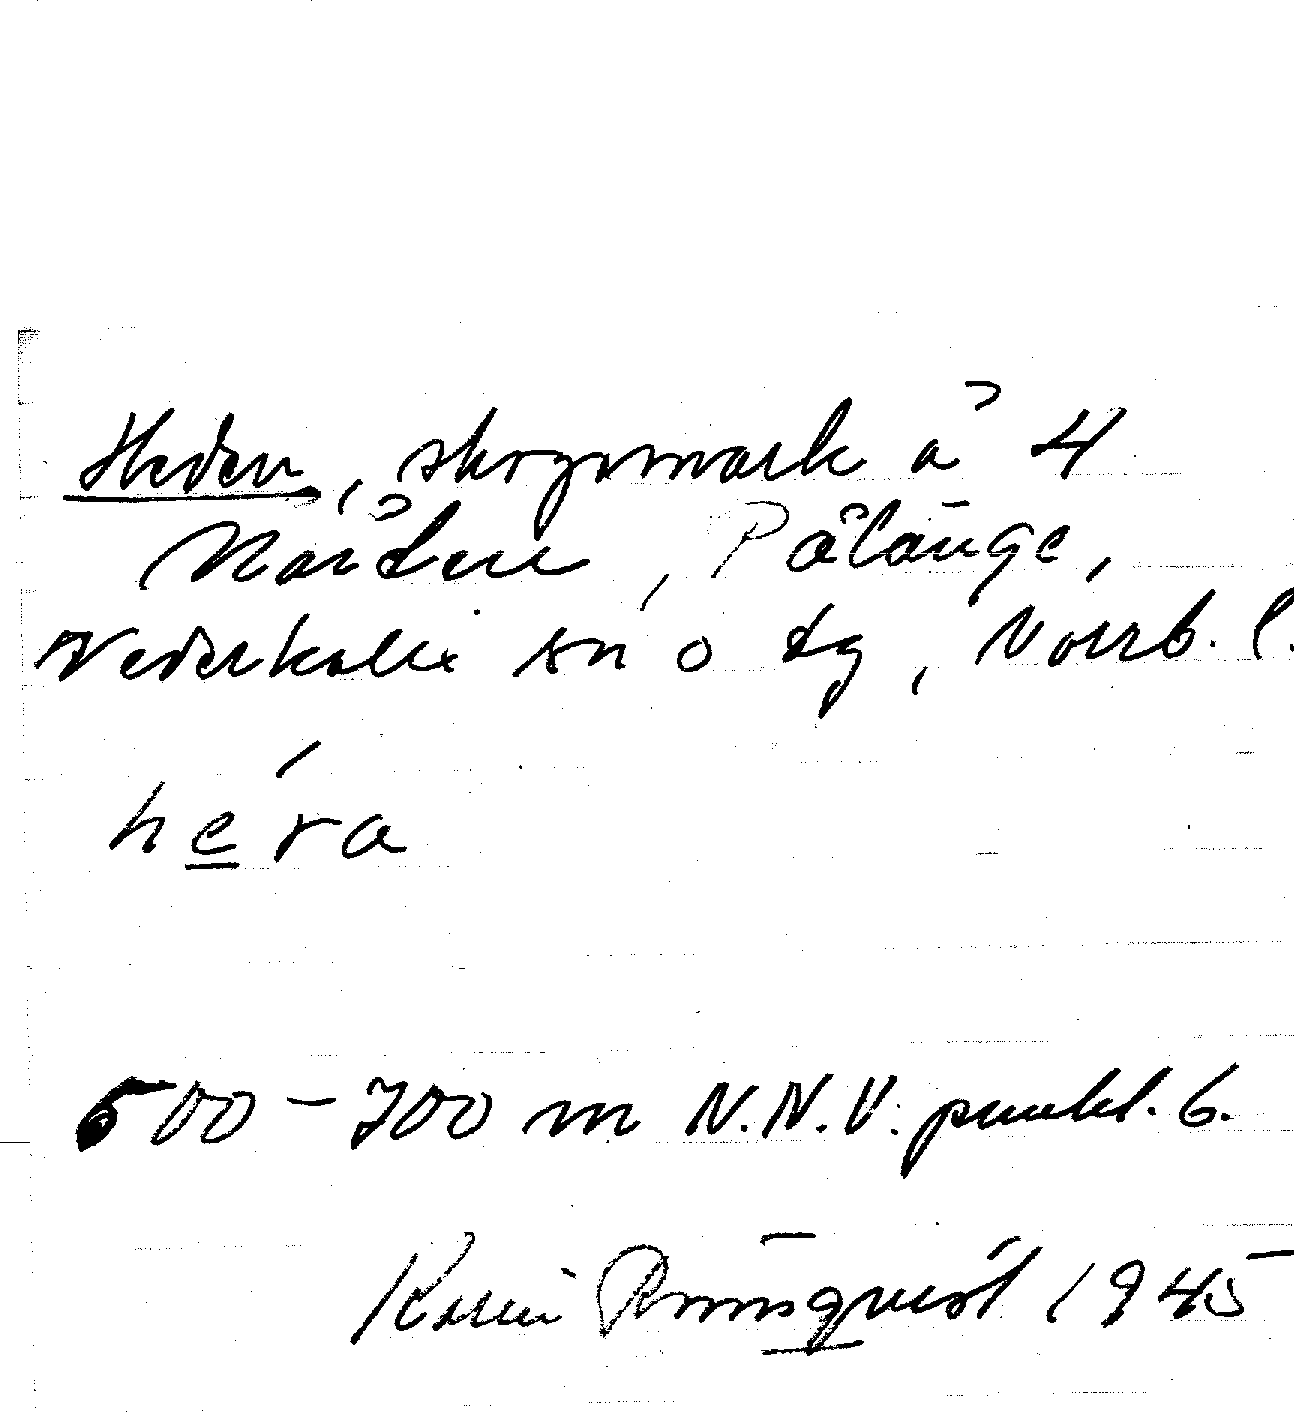 Heden, skogsmark å 4
Målänge,
Nederkalix sn o tg, Norrb. l.
héra
500-700 m N.N.V. punkt. 6.
Karin Rönnqvist 1945